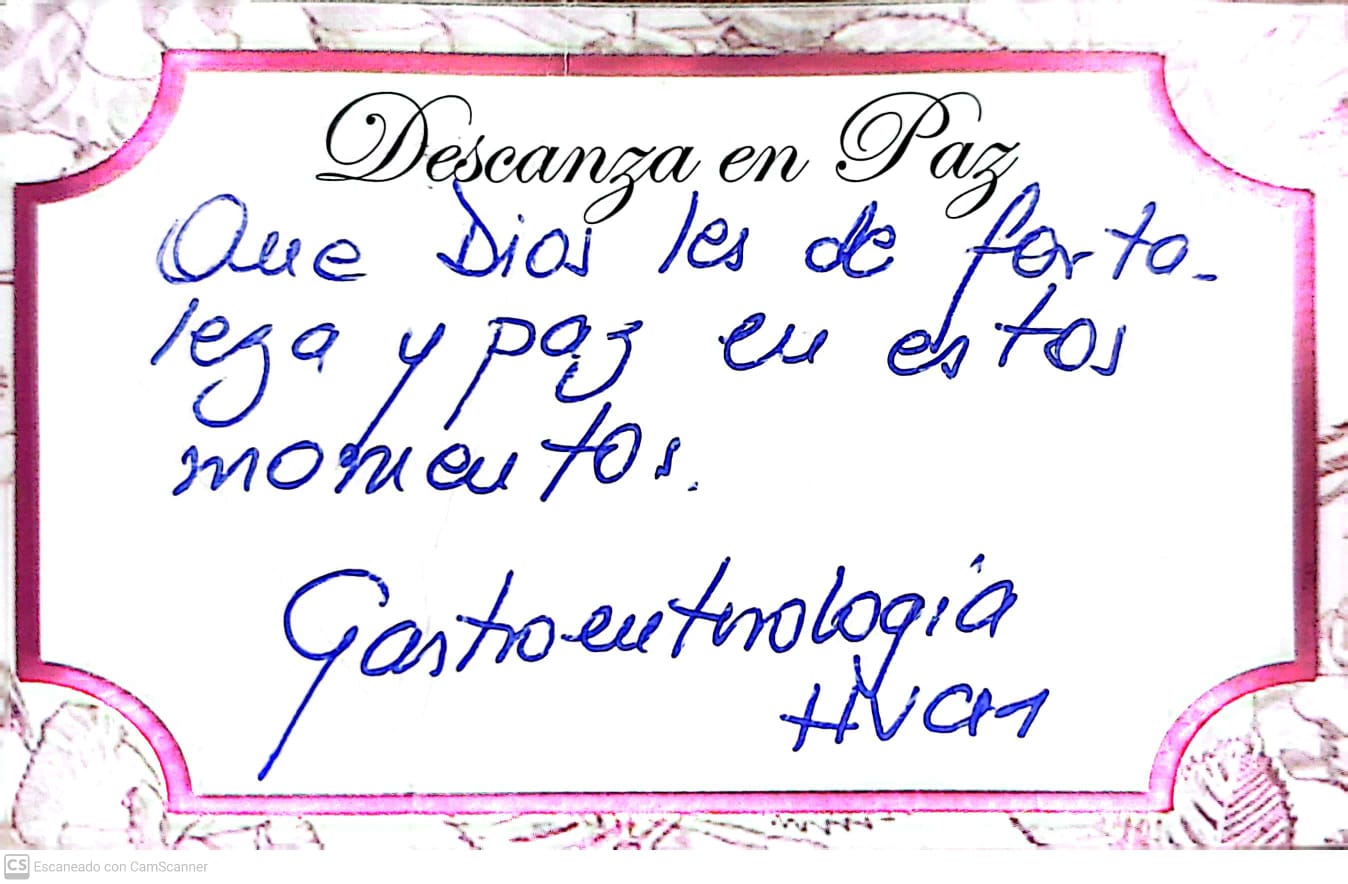 Descanza en Paz
Que Dios les de forta-
leza y paz en estos
momentos.
Gastroenterología
HVCM
CS Escaneado con CamScanner